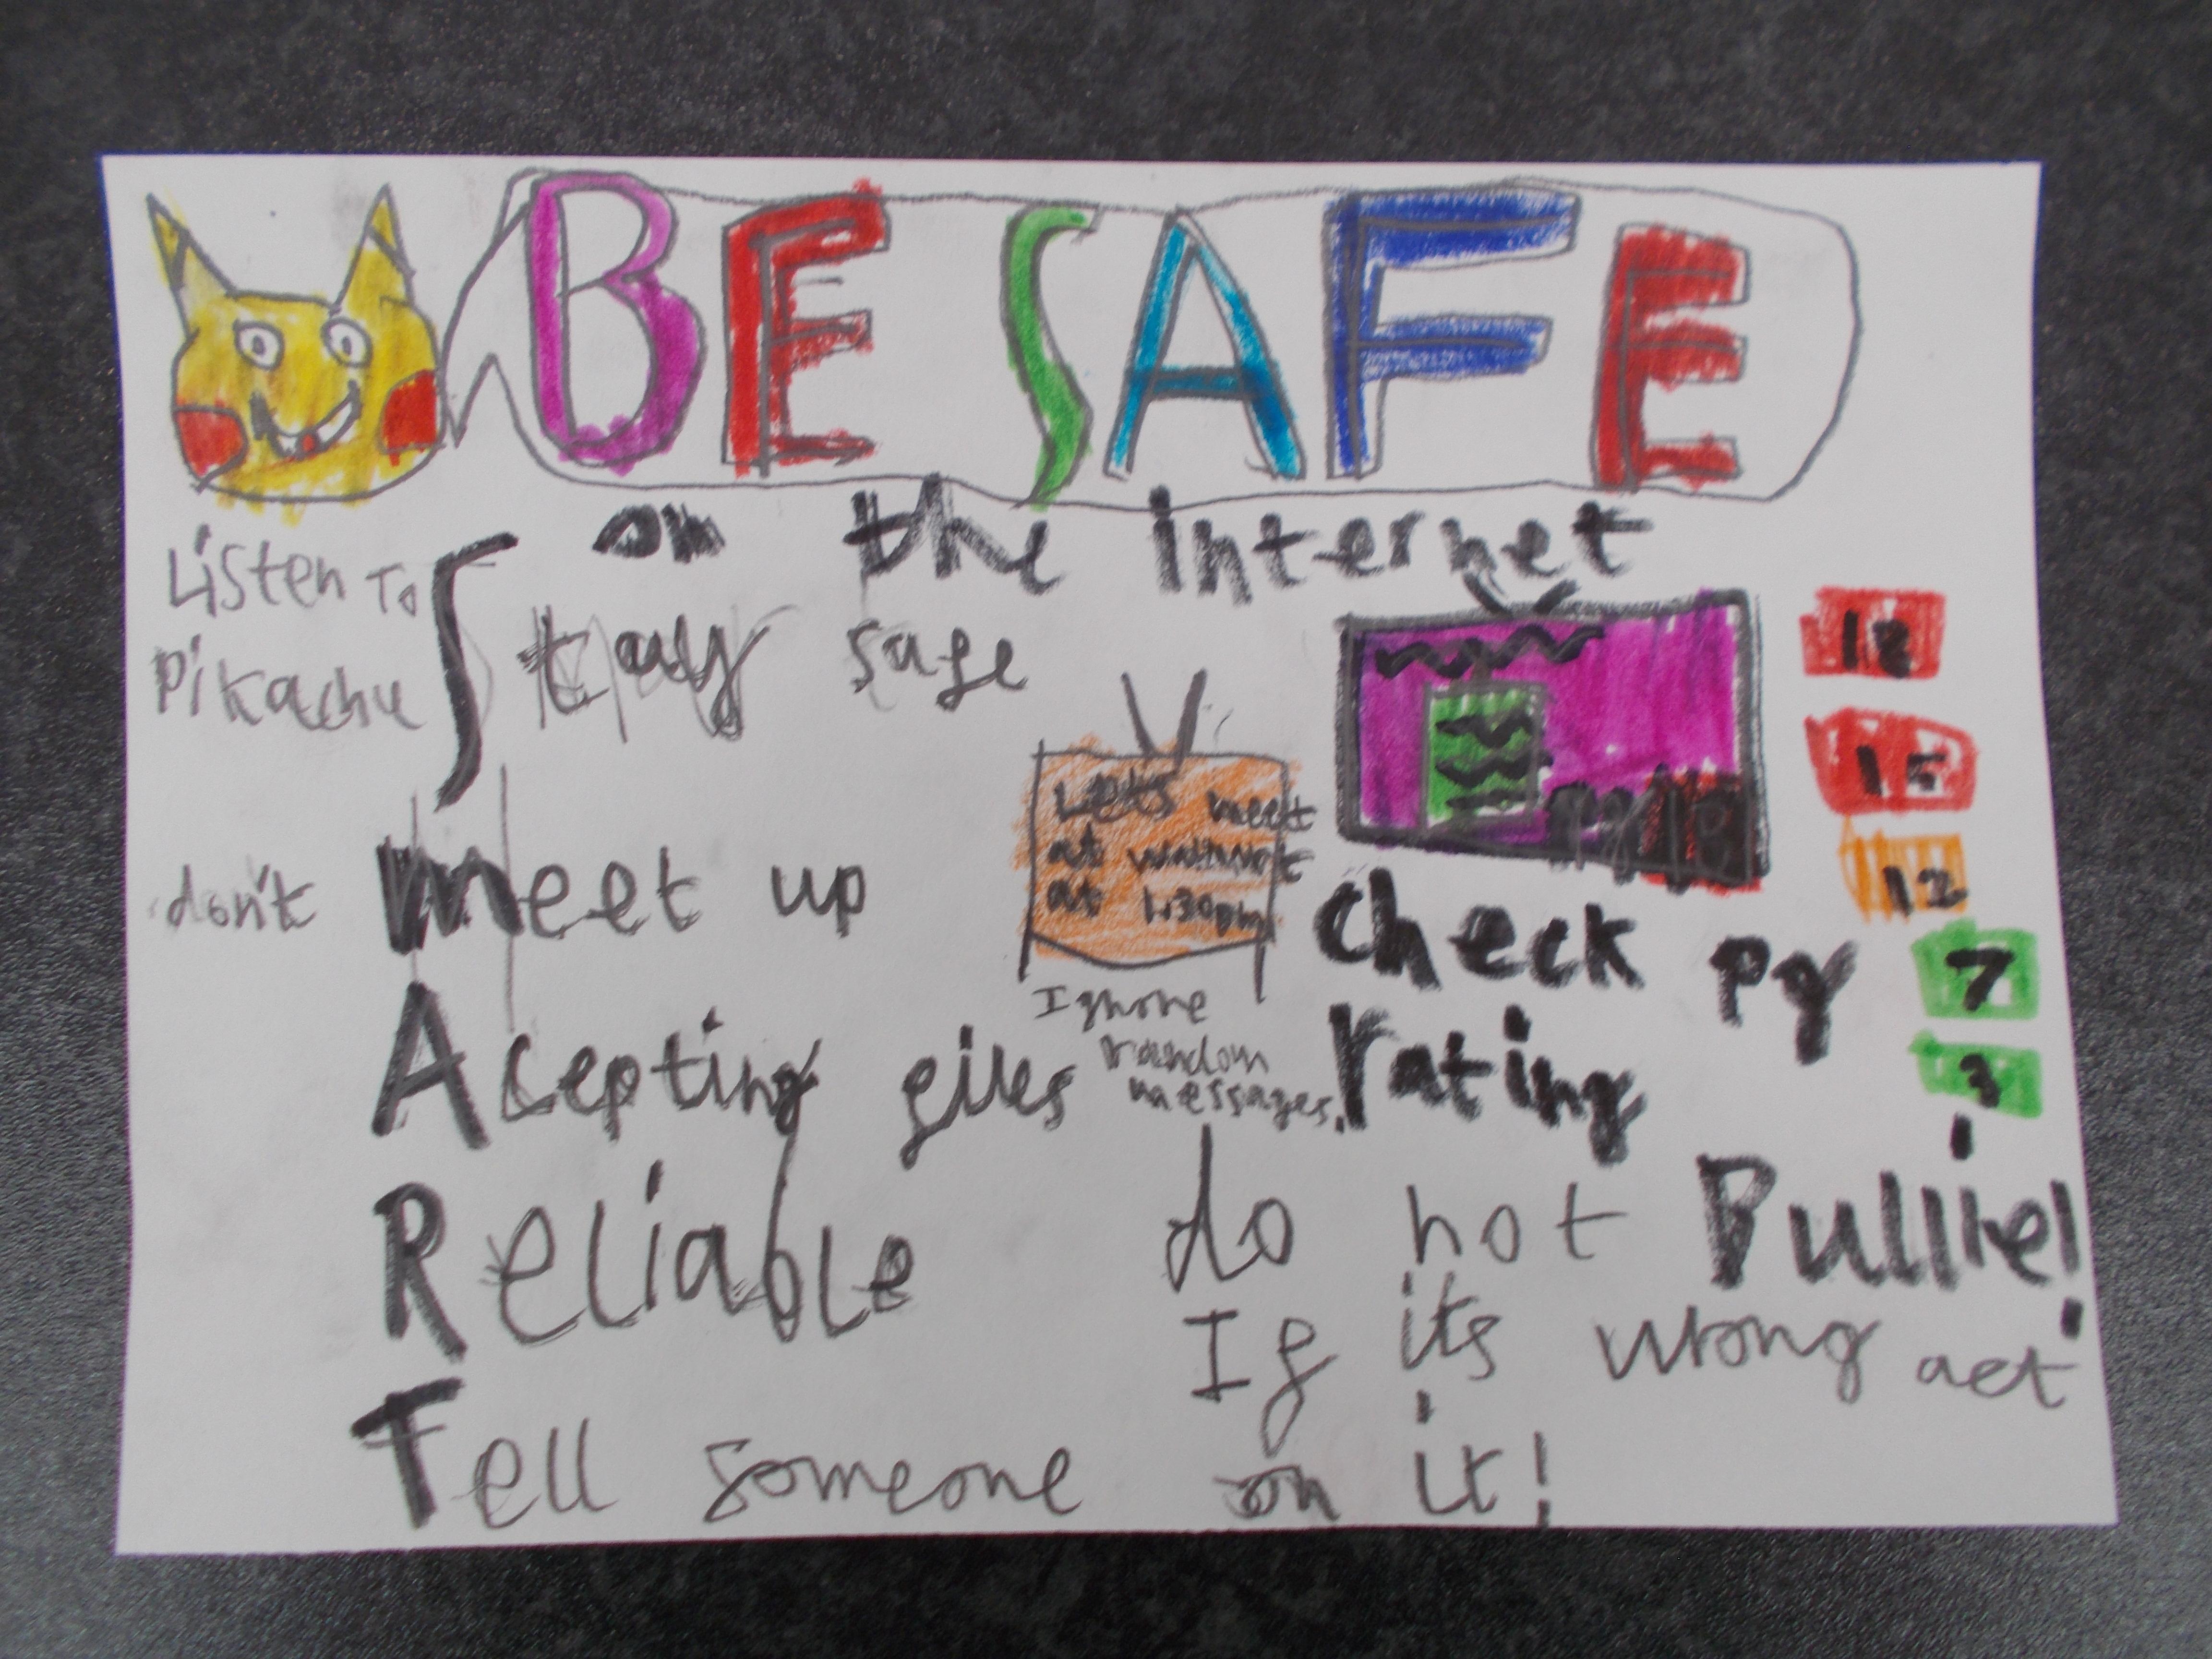 BE SAFE
on the internet
Listen To
Pikachu
Stay safe
don't meet up
Acepting files
Reliable
Tell someone
Lets meet
at
at 1:30pm
Ignore
random
messages.
18
15
12
7
3
Check pg
rating
do not Bullie!
If its wrong act
on it!